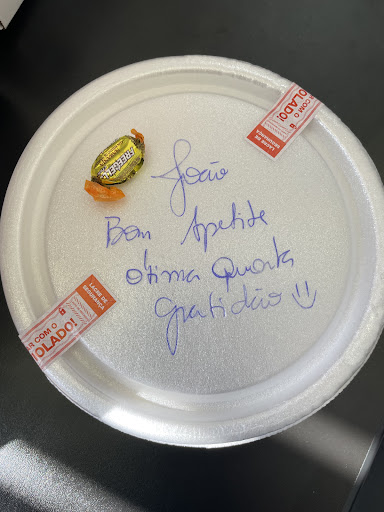 João
Bom Apetite
Ótima Quarta
Gratidão
LACRE DE
SEGURANÇA
R COM O
OLADO!
LACRE DE
SEGURANÇA
R COM O
OLADO!